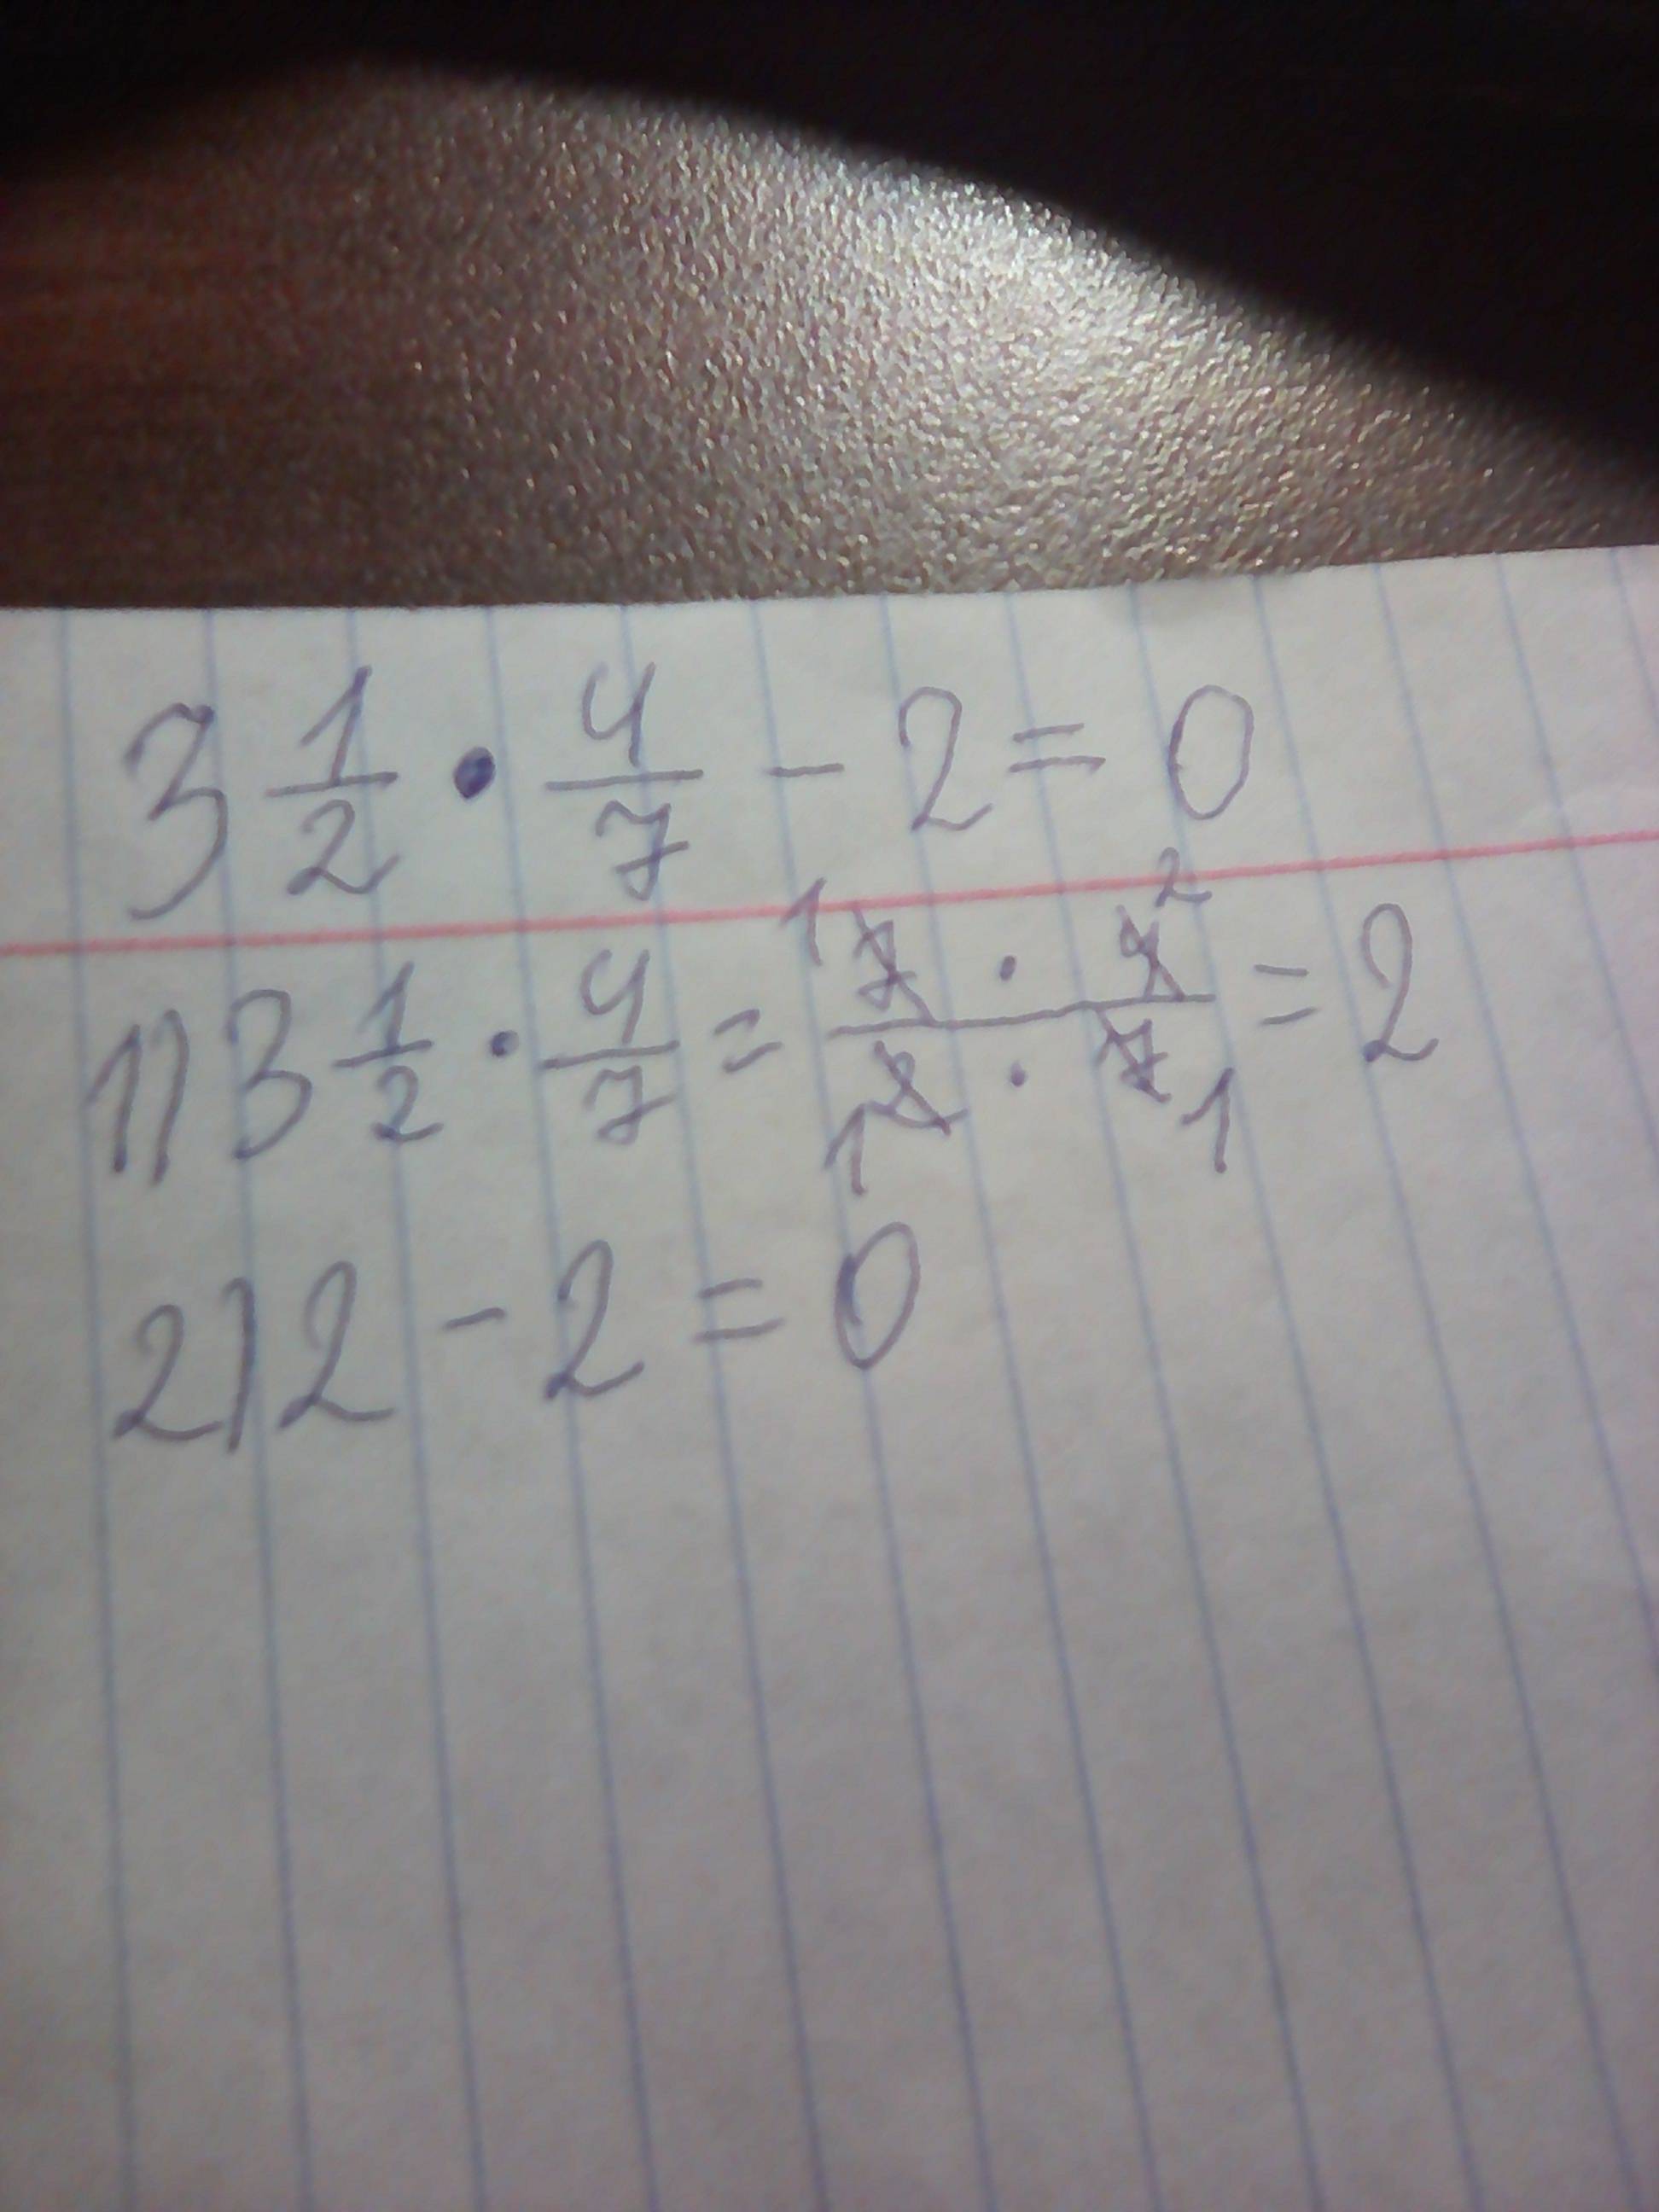 3 1/2 · 4/7 - 2 = 0
1) 3 1/2 · 4/7 = 1 7 · 4 2 / 1 2 · 7 1 = 2
2) 2 - 2 = 0